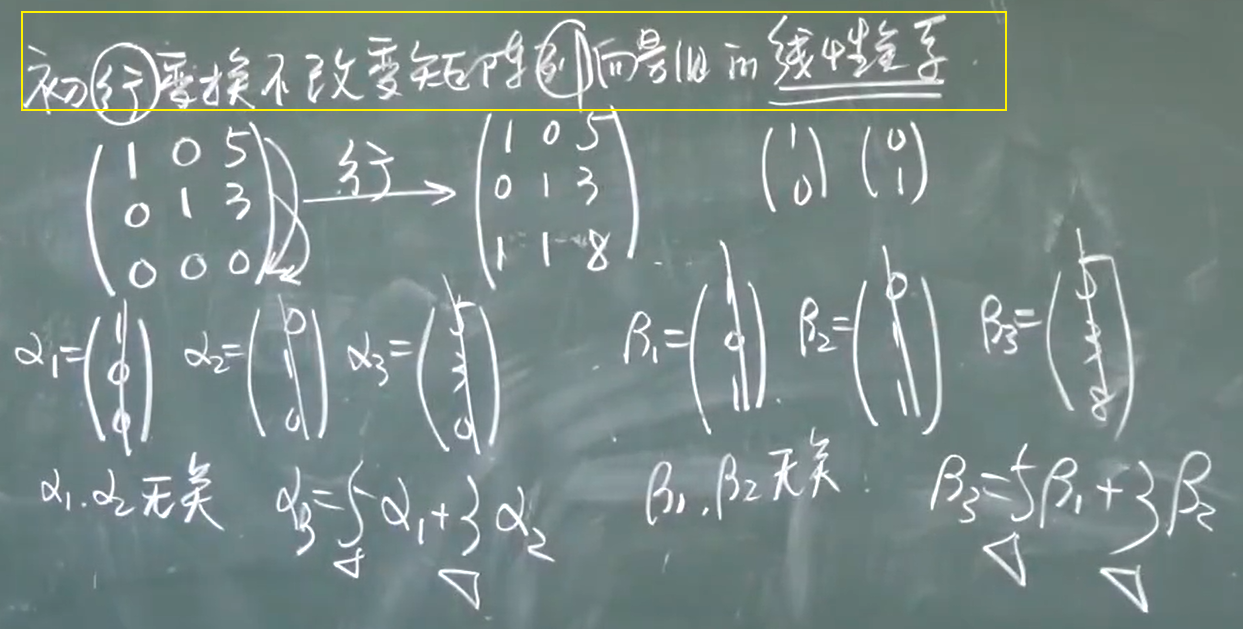 初行变换不改变矩阵列向量组的线性关系.
(1 0 5 / 0 1 3 / 0 0 0) 行→ (1 0 5 / 0 1 3 / 1 1 8) (1 / 0) (0 / 1)
α₁=(1 / 0 / 0) α₂=(0 / 1 / 0) α₃=(5 / 3 / 0) β₁=(1 / 0 / 1) β₂=(0 / 1 / 1) β₃=(5 / 3 / 8)
α₁.α₂无关 α₃=5α₁+3α₂ β₁.β₂无关. β₃=5β₁+3β₂